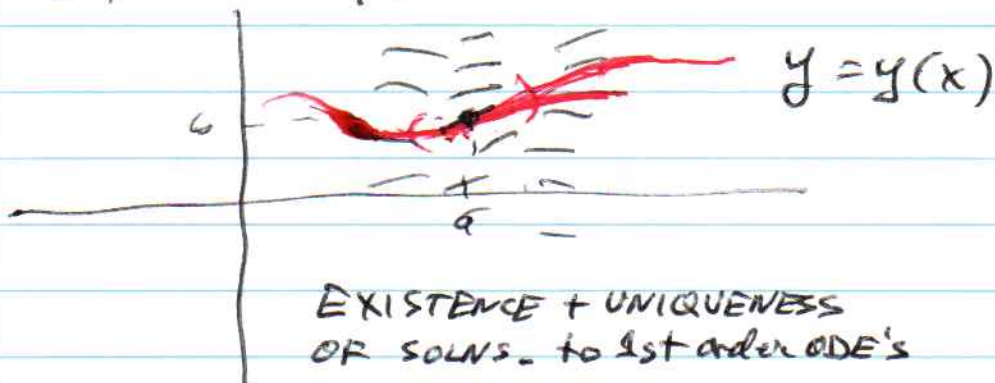 y = y(x)
b
a
EXISTENCE + UNIQUENESS
OF SOLNS. to 1st order ODE's